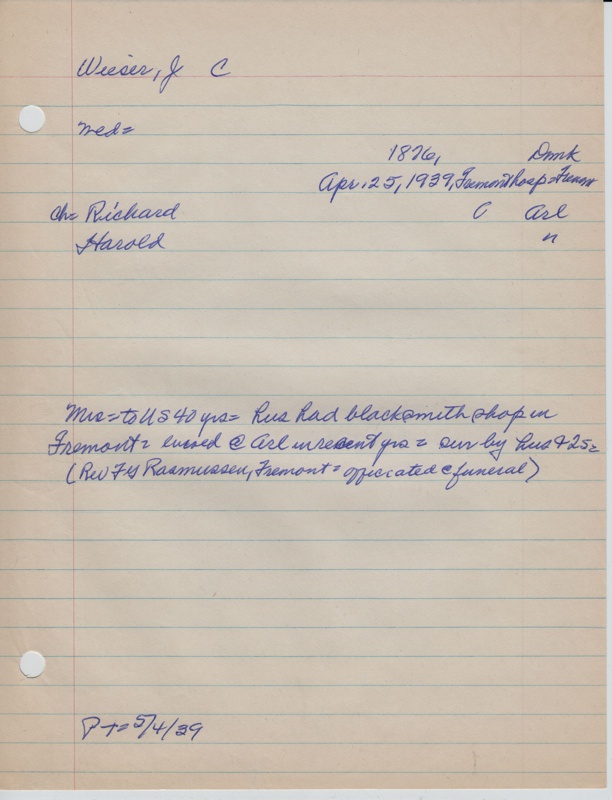 Wieser, J C
med=
1876, Dnmk
Apr. 25, 1939, Fremont hosp = Fremont
ch= Richard C Arl
Harold n
Mrs = to US 40 yrs = hus had blacksmith shop in
Fremont = lived @ Arl in recent yrs = sur by hus & 2 s =
(Rev F W Rasmussen, Fremont = officiated @ funeral)
P-t = 5/4/39